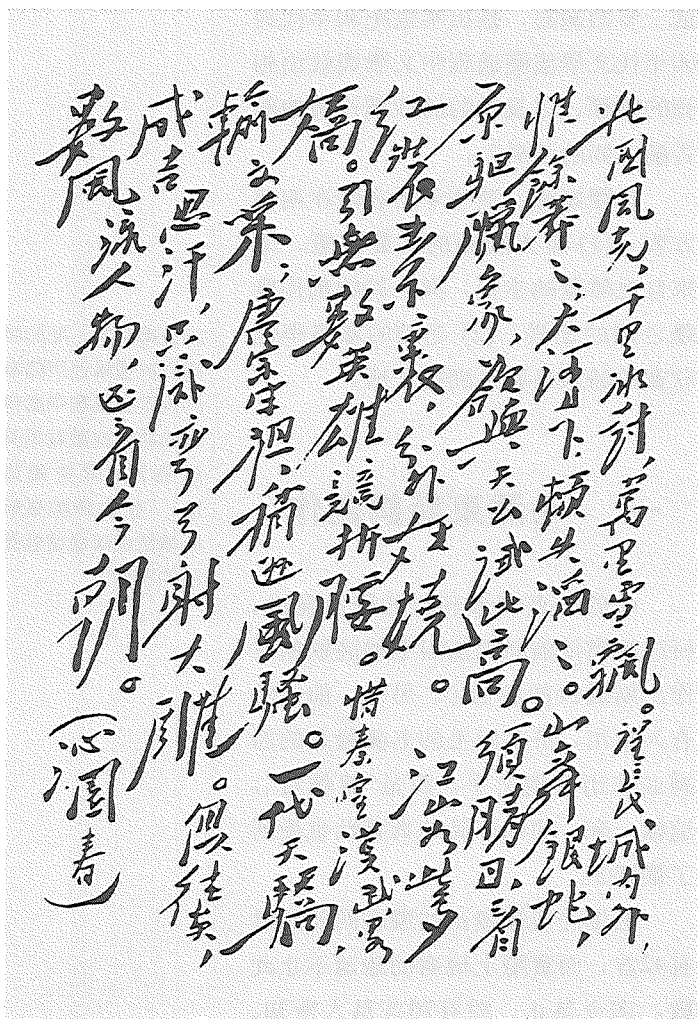 北國風光,千里冰封,萬里雪飄。望長城内外,
惟餘莽〻;大河上下,頓失滔〻。山舞銀蛇,
原驅臘象,欲與天公試比高。須晴日,看
红裝素裹,分外妖嬈。江山如此多
嬌。引無數英雄競折腰。惜秦皇漢武,畧
輸文采;唐宗宋祖,稍遜風騷。一代天驕,
成吉思汗,只識彎弓射大雕。俱往矣,
數風流人物,还看今朝。(沁園春)